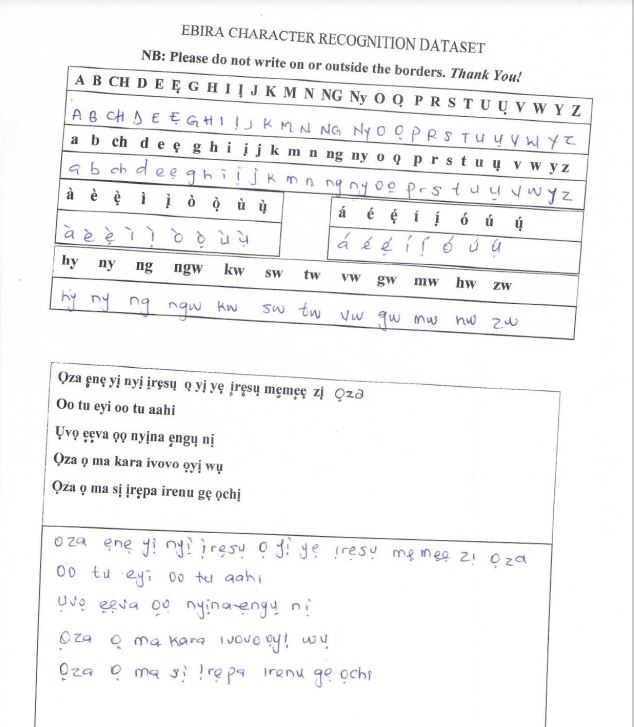 EBIRA CHARACTER RECOGNITION DATASET
NB: Please do not write on or outside the borders. Thank You!
A B CH D E Ẹ G H I Ị J K M N NG Ny O Ọ P R S T U Ụ V W Y Z
A B CH D E Ẹ G H I Ị J K M N NG Ny O Ọ P R S T U Ụ V W Y Z
a b ch d e ẹ g h i ị j k m n ng ny o ọ p r s t u ụ v w y z
a b ch d e ẹ g h i ị j k m n ng ny o ọ p r s t u ụ v w y z
à è ẹ̀ ì ị̀ ò ọ̀ ù ụ̀
à è ẹ̀ ì ị̀ ò ọ̀ ù ụ̀
á é ẹ́ í ị́ ó ú ụ́
á é ẹ́ í ị́ ó ú ụ́
hy ny ng ngw kw sw tw vw gw mw hw zw
hy ny ng ngw kw sw tw vw gw mw hw zw
Ọza ẹnẹ yị nyị ịrẹsụ ọ yị yẹ ịrẹsụ mẹmẹẹ zị ọza
Oo tu eyi oo tu aahi
Ụvọ ẹẹva ọọ nyịna ẹngụ nị
Ọza ọ ma kara ivovo ọyị wụ
Ọza ọ ma sị ịrẹpa irenu gẹ ọchị
oza ẹnẹ yị nyị ịrẹsụ ọ yị yẹ irẹsụ mẹmẹẹ zị ọza
oo tu eyi oo tu aahi
ụvọ ẹẹva ọọ nyịna ẹngụ nị
ọza ọ ma kara ivovo ọyị wụ
ọza ọ ma sị ịrẹpa irenu gẹ ọchị